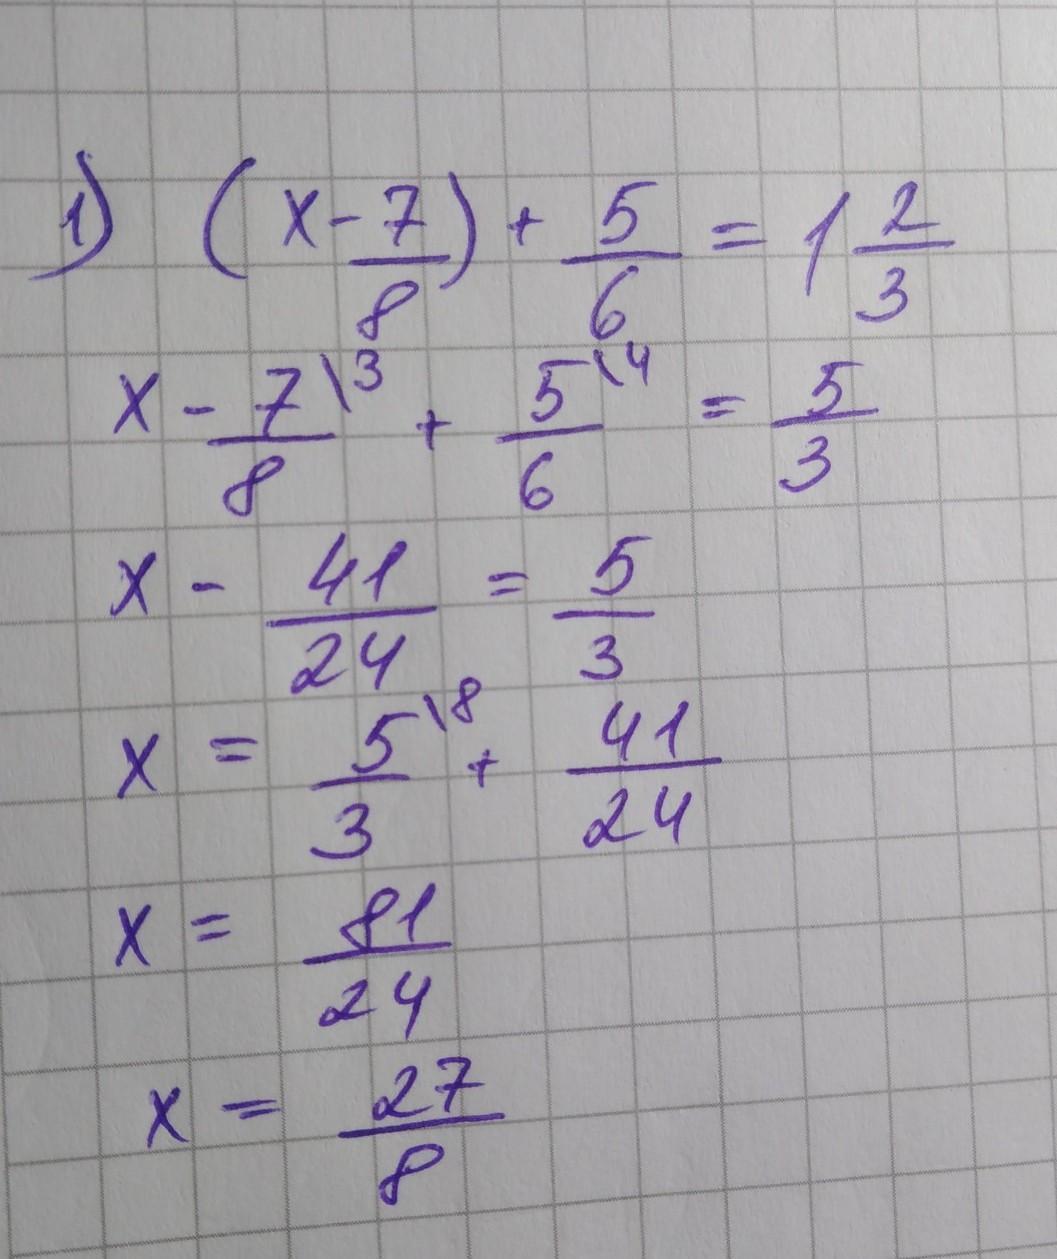 1) (x - 7/8) + 5/6 = 1 2/3
x - 7\3/8 + 5\4/6 = 5/3
x - 41/24 = 5/3
x = 5\8/3 + 41/24
x = 81/24
x = 27/8